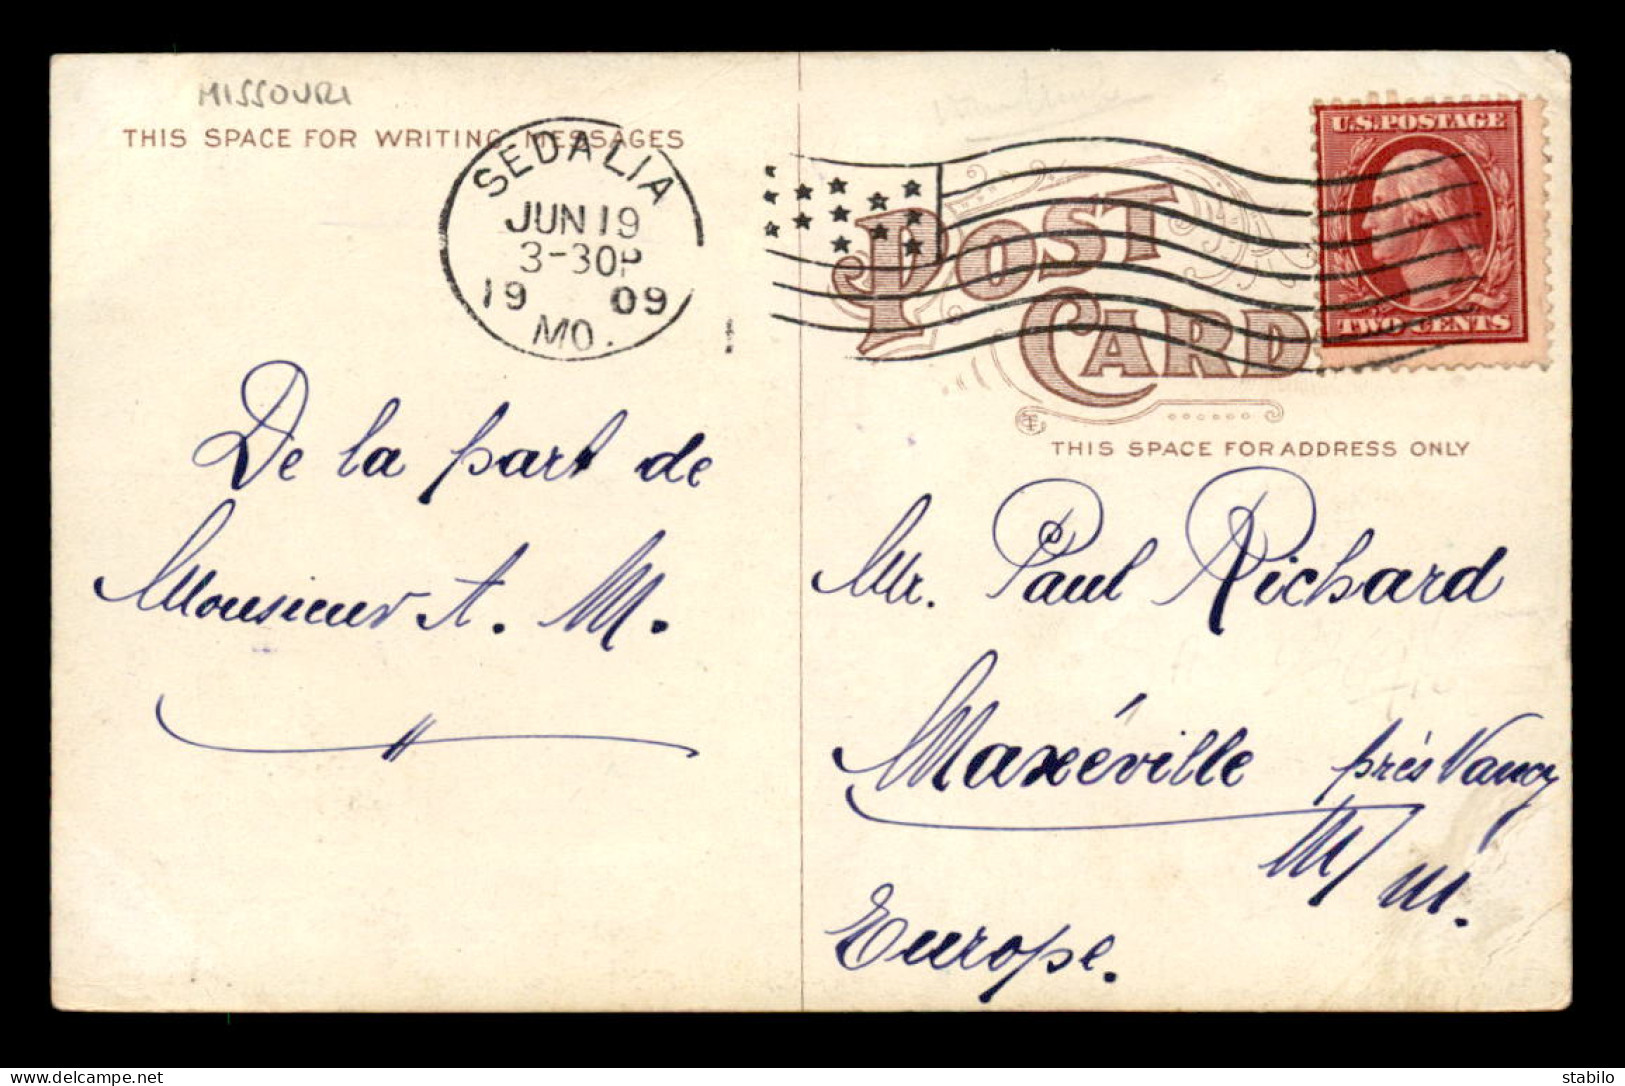 MISSOURI
THIS SPACE FOR WRITING MESSAGES
SEDALIA
JUN 19
3-30P
19 09
MO.
U.S. POSTAGE
TWO CENTS
POST
CARD
THIS SPACE FOR ADDRESS ONLY
De la part de
Monsieur A. M.
Mr. Paul Richard
Maxéville près Nancy
M/M.
Europe.
delcampe.net
stabilo